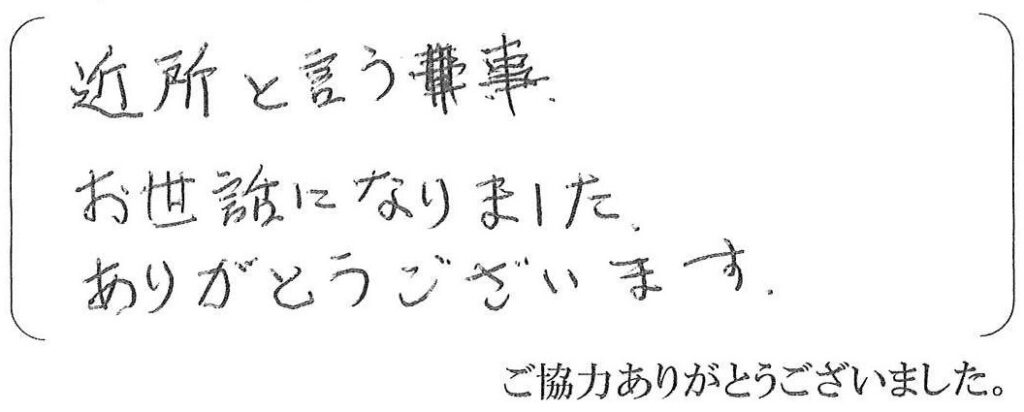 近所と言う事.
お世話になりました.
ありがとうございます.
ご協力ありがとうございました。